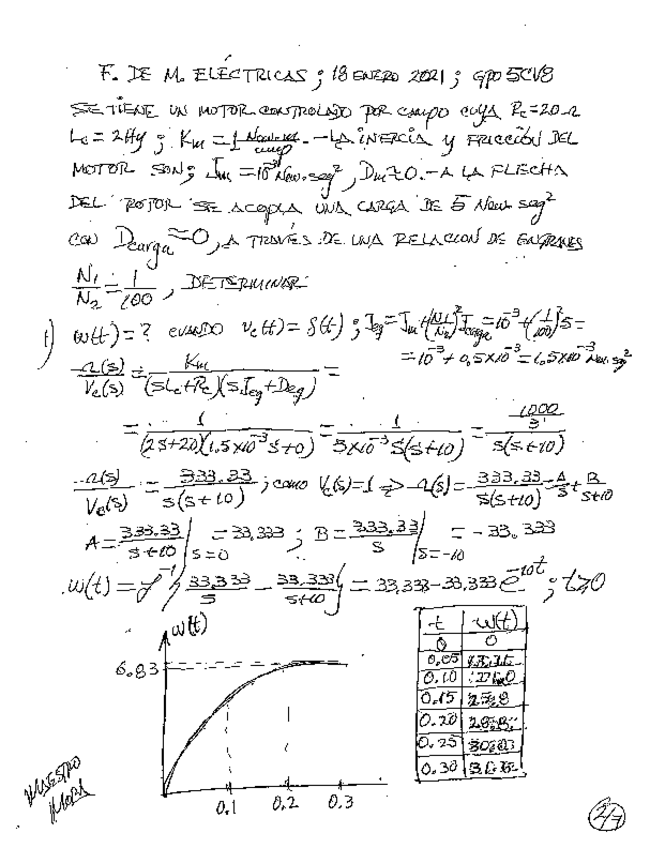 F. DE M. ELÉCTRICAS ; 18 ENERO 2021 ; GPO 5CV8
SE TIENE UN MOTOR CONTROLADO POR CAMPO CUYA Rc=20Ω
Lc = 2Hy ; Km = 1 New-m/amp .- LA INERCIA Y FRICCIÓN DEL
MOTOR SON ; Jm = 10⁻³ New.seg² , Dm≈0.- A LA FLECHA
DEL ROTOR SE ACOPLA UNA CARGA DE 5 New. seg²
CON Dcarga ≈ 0, A TRAVÉS DE UNA RELACION DE ENGRANES
N1/N2 = 1/100 , DETERMINAR:
1) ω(t) = ? CUANDO vc(t) = δ(t) ; Jeq = Jm + (N1/N2)² Jcarga = 10⁻³ + (1/100)² 5 =
= 10⁻³ + 0.5x10⁻³ = 1.5x10⁻³ New.seg²
Ω(s)/Vc(s) = Km/(sLc+Rc)(sJeq+Deq) =
= 1/(2s+20)(1.5x10⁻³s+0) = 1/3x10⁻³ s(s+10) = 1000/3 / s(s+10)
Ω(s)/Vc(s) = 333.33/s(s+10) ; como Vc(s)=1 => Ω(s) = 333.33/s(s+10) = A/s + B/s+10
A = 333.33/s+10 |s=0 = 33.333 ; B = 333.33/s |s=-10 = -33.333
ω(t) = ℒ⁻¹{33.333/s - 33.333/s+10} = 33.333 - 33.333 e⁻¹⁰ᵗ ; t≥0
ω(t)
6.83
0.1 0.2 0.3
t ω(t)
0 0
0.05
0.10
0.15
0.20
0.25
0.30
MAESTRO
MORA
2/7